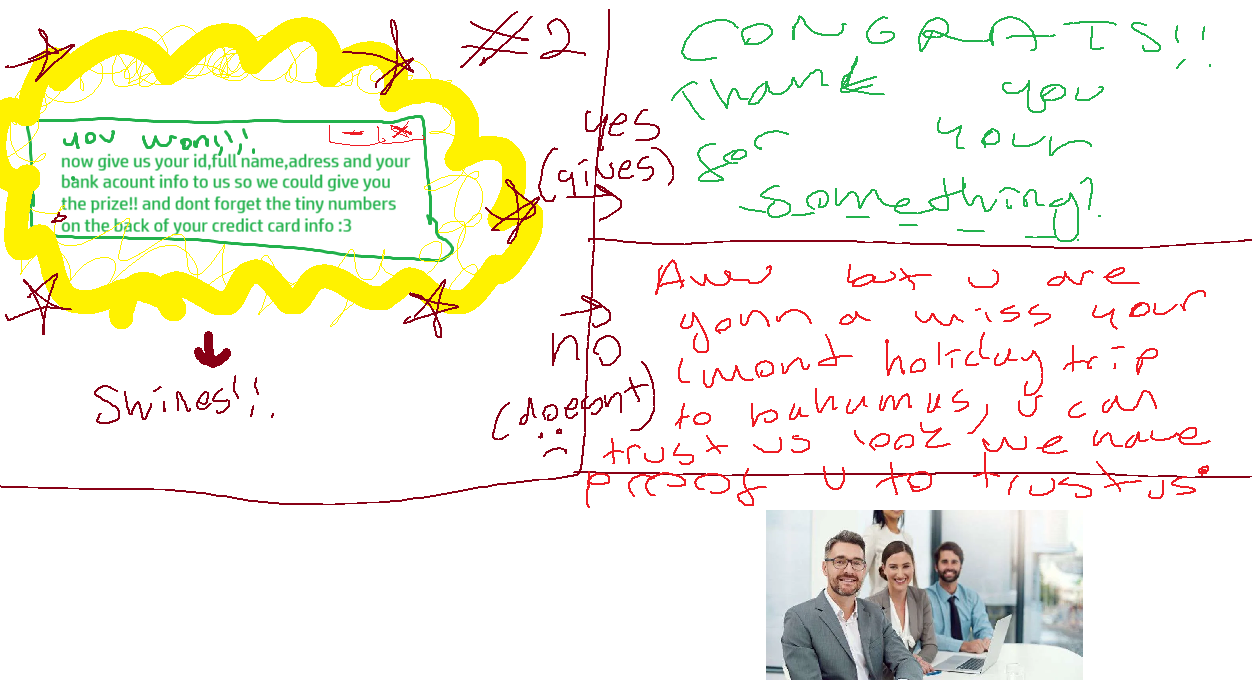 #2
you won!!!
now give us your id,full name,adress and your
bank acount info to us so we could give you
the prize!! and dont forget the tiny numbers
on the back of your credict card info :3
Shines!!!
yes
(gives)
CONGRATS!!
Thank you
for your
something?
no
(doesnt)
Aww but u are
gonna miss your
1mond holiday trip
to bahamas, u can
trust us 100% we have
proof u to trust us.